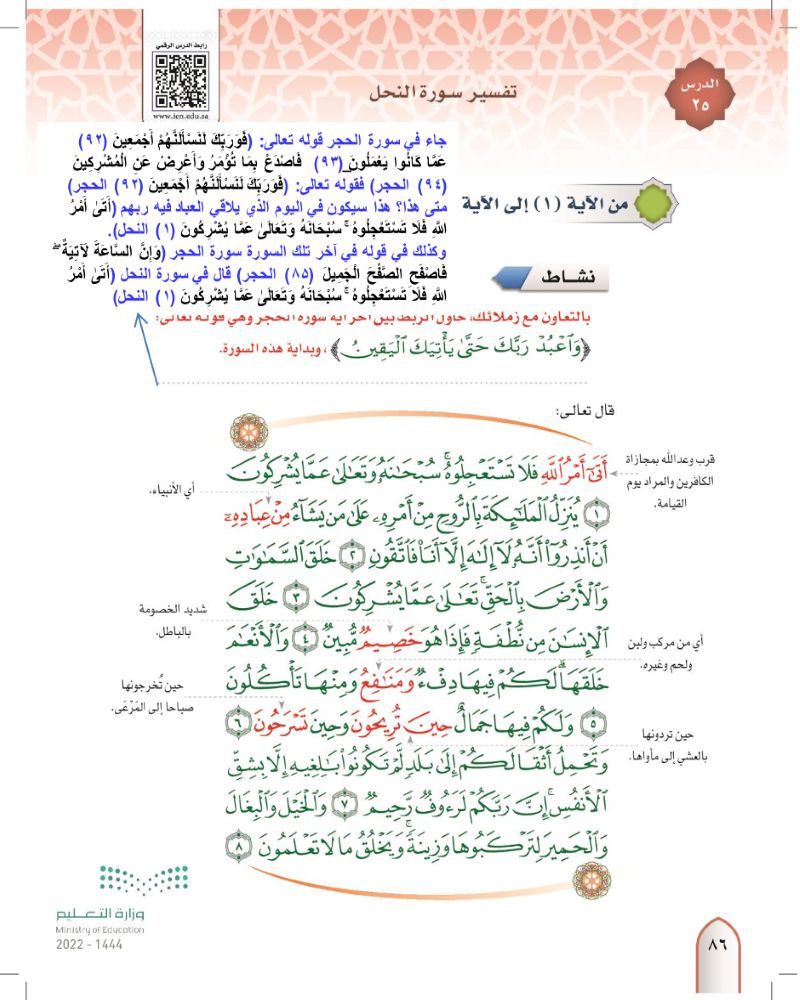 رابط الدرس الرقمي
www.ien.edu.sa
الدرس
٢٥
تفسير سورة النحل
جاء في سورة الحجر قوله تعالى: (فَوَرَبِّكَ لَنَسْأَلَنَّهُمْ أَجْمَعِينَ (٩٢)
عَمَّا كَانُوا يَعْمَلُونَ (٩٣) فَاصْدَعْ بِمَا تُؤْمَرُ وَأَعْرِضْ عَنِ الْمُشْرِكِينَ
(٩٤) الحجر) فقوله تعالى: (فَوَرَبِّكَ لَنَسْأَلَنَّهُمْ أَجْمَعِينَ (٩٢) الحجر)
متى هذا؟ هذا سيكون في اليوم الذي يلاقي العباد فيه ربهم (أَتَىٰ أَمْرُ
اللَّهِ فَلَا تَسْتَعْجِلُوهُ ۚ سُبْحَانَهُ وَتَعَالَىٰ عَمَّا يُشْرِكُونَ (١) النحل).
وكذلك في قوله في آخر تلك السورة سورة الحجر (وَإِنَّ السَّاعَةَ لَآتِيَةٌ ۖ
فَاصْفَحِ الصَّفْحَ الْجَمِيلَ (٨٥) الحجر) قال في سورة النحل (أَتَىٰ أَمْرُ
اللَّهِ فَلَا تَسْتَعْجِلُوهُ ۚ سُبْحَانَهُ وَتَعَالَىٰ عَمَّا يُشْرِكُونَ (١) النحل)
من الآية (١) إلى الآية
نشـاط
بالتعاون مع زملائك، حاول الربط بين آخر آية سورة الحجر وهي قوله تعالى:
﴿وَٱعْبُدْ رَبَّكَ حَتَّىٰ يَأْتِيَكَ ٱلْيَقِينُ﴾، وبداية هذه السورة.
قال تعالى:
أَتَىٰٓ أَمْرُ ٱللَّهِ فَلَا تَسْتَعْجِلُوهُ ۚ سُبْحَٰنَهُۥ وَتَعَٰلَىٰ عَمَّا يُشْرِكُونَ
١ يُنَزِّلُ ٱلْمَلَٰٓئِكَةَ بِٱلرُّوحِ مِنْ أَمْرِهِۦ عَلَىٰ مَن يَشَآءُ مِنْ عِبَادِهِۦٓ
أَنْ أَنذِرُوٓا۟ أَنَّهُۥ لَآ إِلَٰهَ إِلَّآ أَنَا۠ فَٱتَّقُونِ ٢ خَلَقَ ٱلسَّمَٰوَٰتِ
وَٱلْأَرْضَ بِٱلْحَقِّ ۚ تَعَٰلَىٰ عَمَّا يُشْرِكُونَ ٣ خَلَقَ
ٱلْإِنسَٰنَ مِن نُّطْفَةٍ فَإِذَا هُوَ خَصِيمٌ مُّبِينٌ ٤ وَٱلْأَنْعَٰمَ
خَلَقَهَا ۗ لَكُمْ فِيهَا دِفْءٌ وَمَنَٰفِعُ وَمِنْهَا تَأْكُلُونَ
٥ وَلَكُمْ فِيهَا جَمَالٌ حِينَ تُرِيحُونَ وَحِينَ تَسْرَحُونَ ٦
وَتَحْمِلُ أَثْقَالَكُمْ إِلَىٰ بَلَدٍ لَّمْ تَكُونُوا۟ بَٰلِغِيهِ إِلَّا بِشِقِّ
ٱلْأَنفُسِ ۚ إِنَّ رَبَّكُمْ لَرَءُوفٌ رَّحِيمٌ ٧ وَٱلْخَيْلَ وَٱلْبِغَالَ
وَٱلْحَمِيرَ لِتَرْكَبُوهَا وَزِينَةً ۚ وَيَخْلُقُ مَا لَا تَعْلَمُونَ ٨
قرب وعد الله بمجازاة
الكافرين والمراد يوم
القيامة.
أي الأنبياء.
شديد الخصومة
بالباطل.
أي من مركب ولبن
ولحم وغيره.
حين تُخرجونها
صباحا إلى المَرْعَى.
حين تردونها
بالعشي إلى مأواها.
وزارة التعـليم
Ministry of Education
2022 - 1444
٨٦